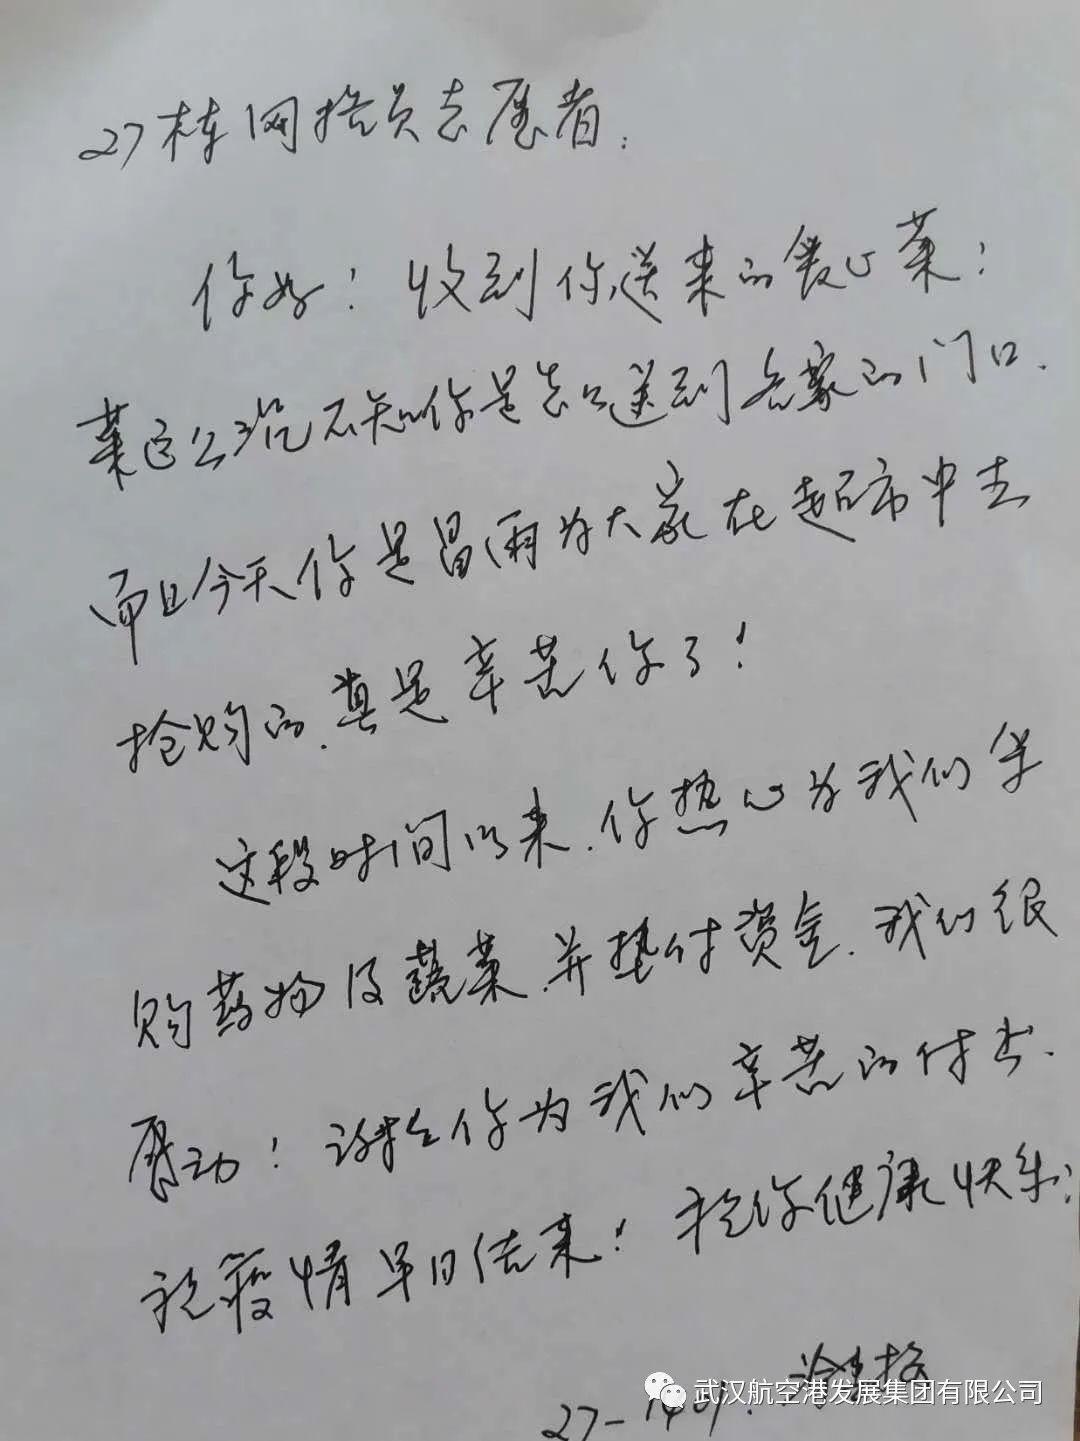 27栋网格员志愿者：
你好！收到你送来的爱心菜！
菜这么沉不知你是怎么送到各家的门口.
而且今天你是冒雨为大家在超市中去
抢购的.真是辛苦你了！
这段时间以来.你热心为我们代
购药物及蔬菜,并垫付资金.我们很
感动！谢谢你为我们辛苦的付出.
祝疫情早日结束！祝你健康快乐！
27-1401.
武汉航空港发展集团有限公司